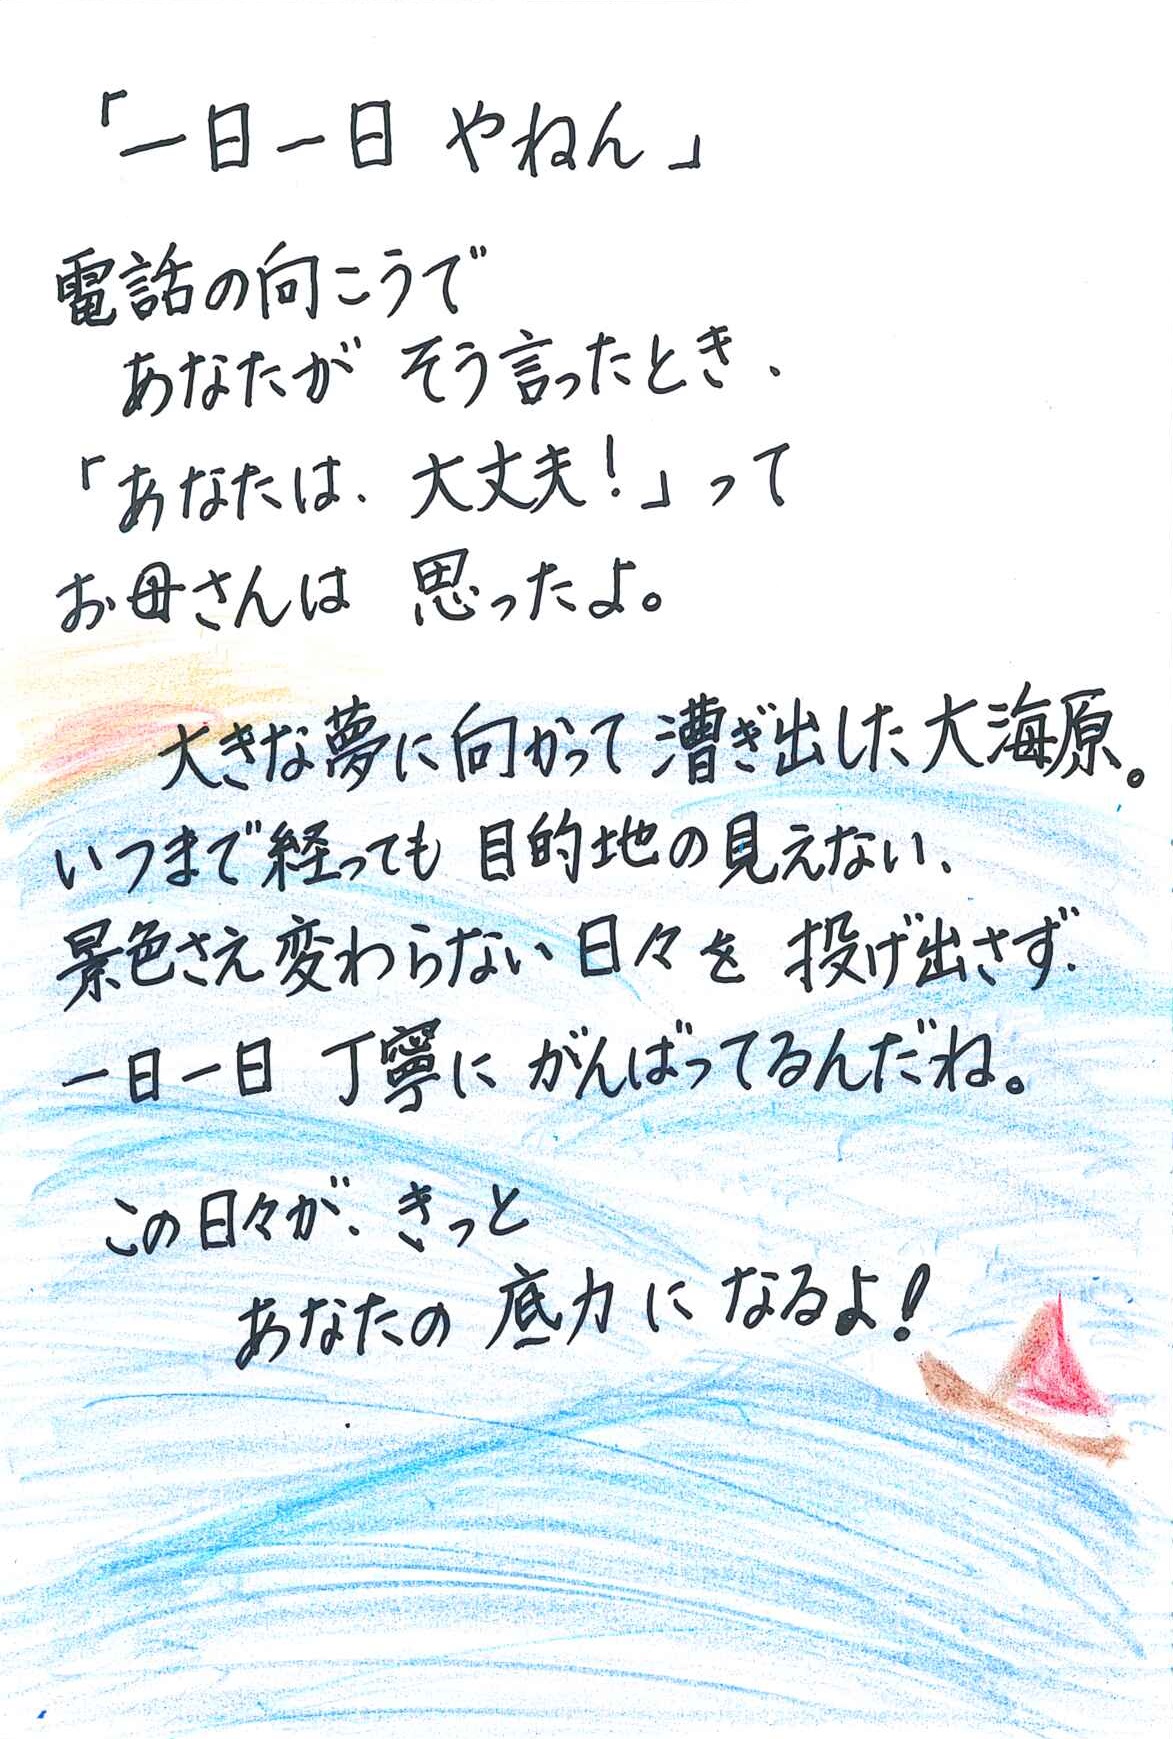 「一日一日 やねん」
電話の向こうで
あなたが そう言ったとき、
「あなたは、大丈夫!」って
お母さんは 思ったよ。
大きな夢に向かって漕ぎ出した大海原。
いつまで経っても 目的地の見えない、
景色さえ変わらない日々を 投げ出さず、
一日一日 丁寧に がんばってるんだね。
この日々が、きっと
あなたの 底力に なるよ!